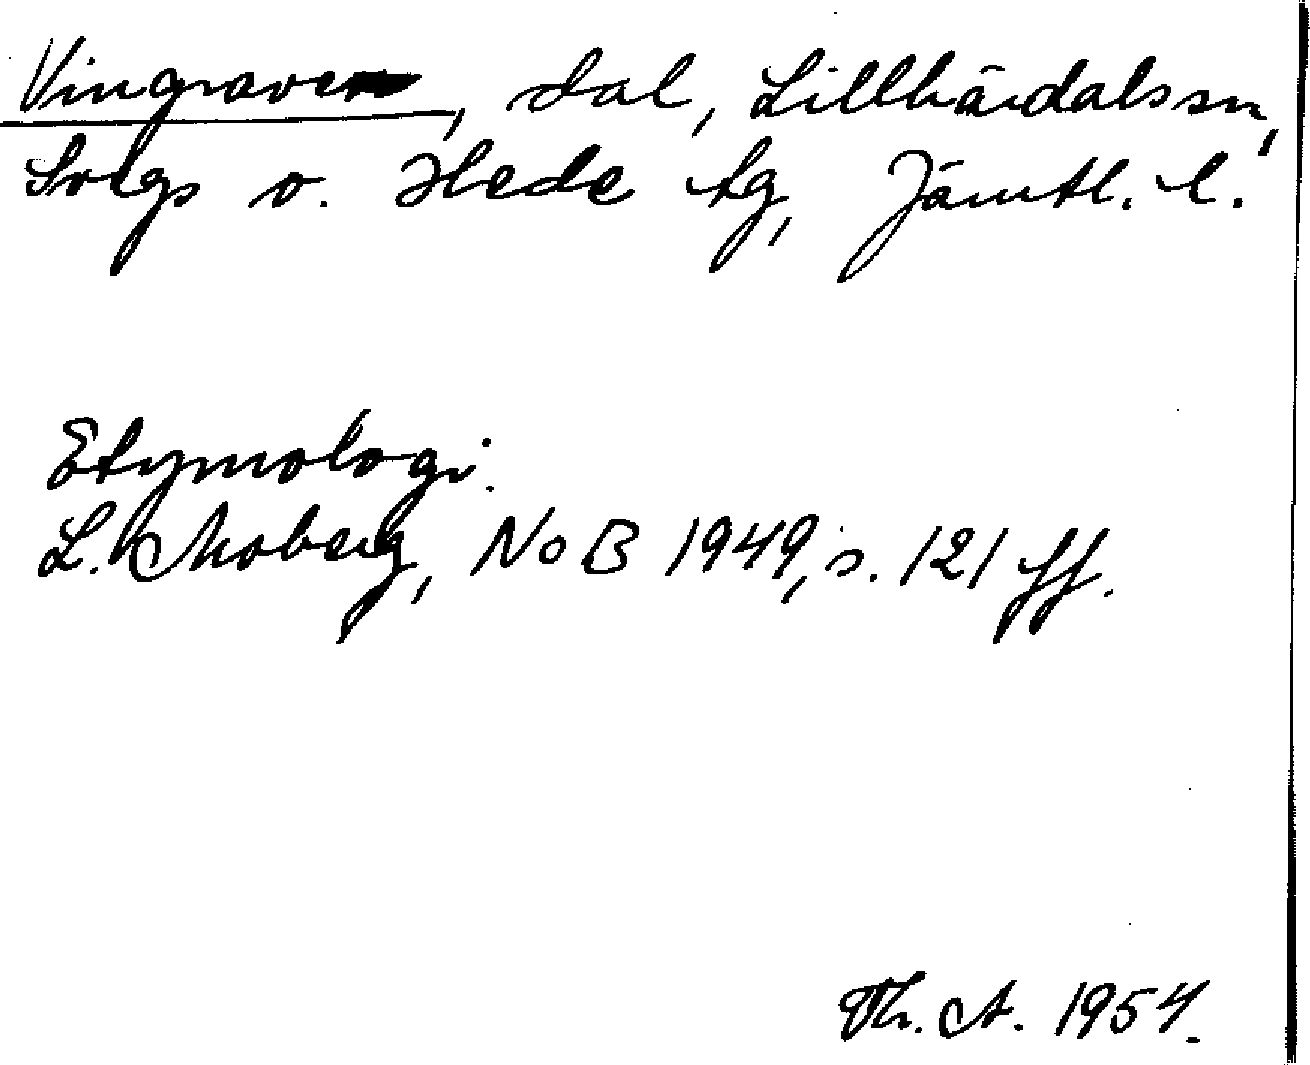 Vingraven, dal, Lillhärdals sn,
Svegs o. Hede tg, Jämtl. l.
Etymologi:
L. Moberg, NoB 1949, s. 121 ff.
Th. A. 1954.